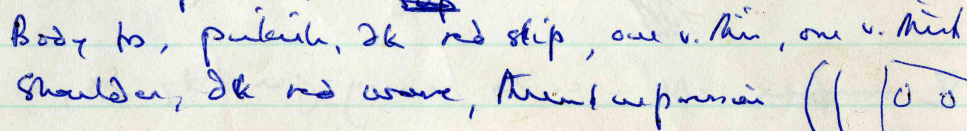 Body fs, pinkish, dk red slip, one v. thin, one v. thick
shoulder, dk red ware, thumb impression